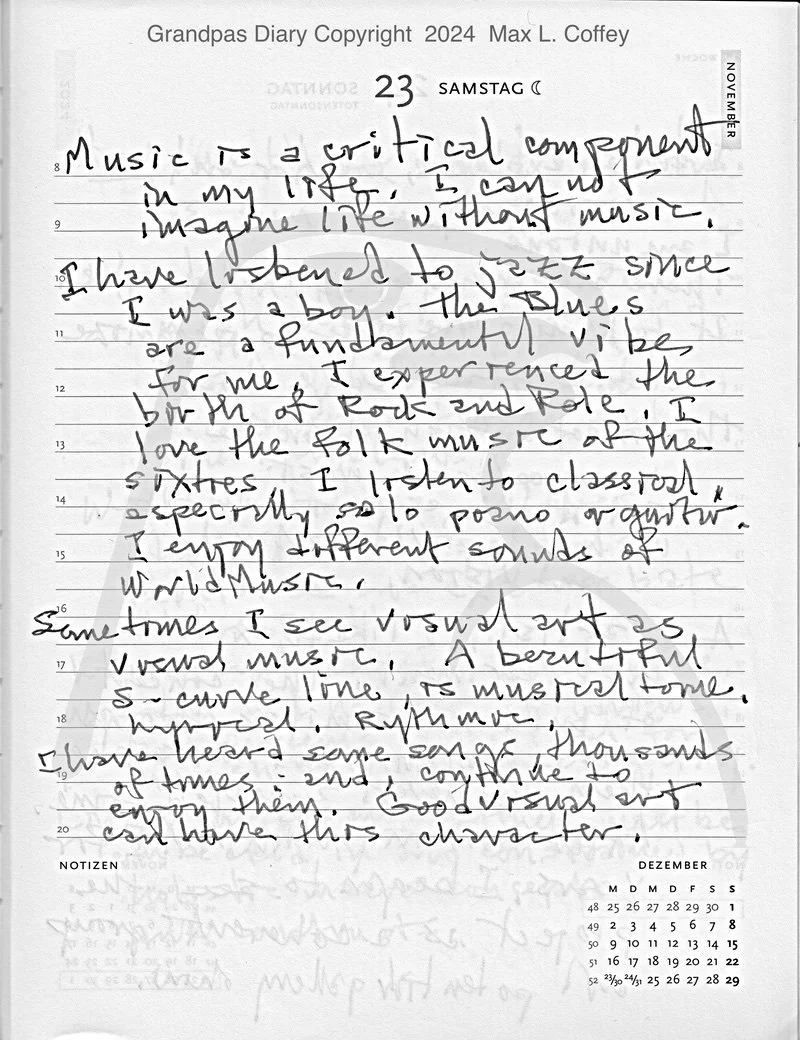 Grandpas Diary Copyright 2024 Max L. Coffey
NOVEMBER
23 SAMSTAG
8 Music is a critical component
in my life. I can not
9 imagine life without music.
10 I have listened to jazz since
I was a boy. The Blues
11 are a fundamentl vibe
12 for me. I experienced the
birth of Rock and Role. I
13 love the folk music of the
sixties. I listen to classical,
14 especially solo piano or guitar.
15 I enjoy different sounds of
World Music.
16 Sometimes I see visual art as
17 visual music. A beautiful
S-curve line, is musical to me.
18 Lyrical. Rythmic.
I have heard some songs, thousands
19 of times - and, continue to
enjoy them. Good visual art
20 can have this character.
NOTIZEN
DEZEMBER
M D M D F S S
48 25 26 27 28 29 30 1
49 2 3 4 5 6 7 8
50 9 10 11 12 13 14 15
51 16 17 18 19 20 21 22
52 23/30 24/31 25 26 27 28 29